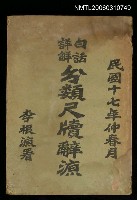 NMTU20060310740
民國十七年仲春月
白話
詳解
分類尺牘辭源
李根源署